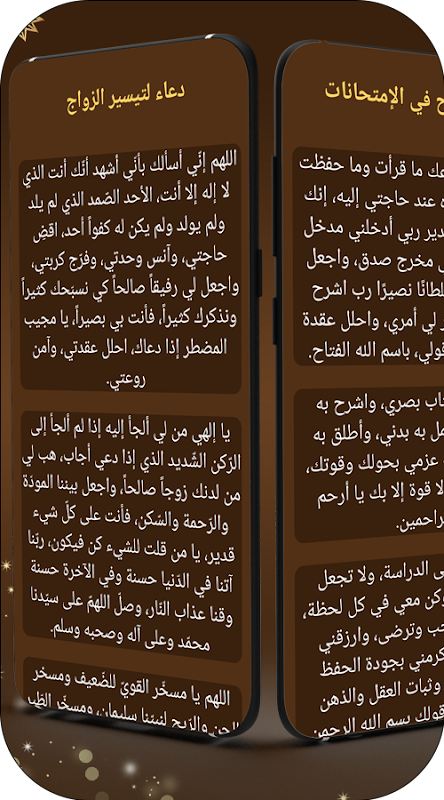 دعاء لتيسير الزواج
اللهم إنّي أسألك بأنّي أشهد أنّك أنت الذي
لا إله إلا أنت، الأحد الصّمد الذي لم يلد
ولم يولد ولم يكن له كفواً أحد، اقضِ
حاجتي، وآنس وحدتي، وفرّج كربتي،
واجعل لي رفيقاً صالحاً كي نسبّحك كثيراً
ونذكرك كثيراً، فأنت بي بصيراً، يا مجيب
المضطر إذا دعاك، احلل عقدتي، وآمن
روعتي.
يا إلهي من لي ألجأ إليه إذا لم ألجأ إلى
الرّكن الشّديد الذي إذا دعي أجاب، هب لي
من لدنك زوجاً صالحاً، واجعل بيننا المودّة
والرّحمة والسّكن، فأنت على كلّ شيء
قدير، يا من قلت للشيء كن فيكون، ربّنا
آتنا في الدّنيا حسنة وفي الآخرة حسنة
وقنا عذاب النّار، وصلّ اللهمّ على سيّدنا
محمّد وعلى آله وصحبه وسلم.
اللهم يا مسخّر القويّ للضّعيف ومسخر
الجن والرّيح لنبيّنا سليمان، ومسخّر الطّير
في الإمتحانات
ما قرأت وما حفظت
عند حاجتي إليه، إنك
ربي أدخلني مدخل
مخرج صدق، واجعل
نصيرًا رب اشرح
لي أمري، واحلل عقدة
قولي، باسم الله الفتاح.
بصري، واشرح به
به بدني، وأطلق به
عزمي بحولك وقوتك،
لا قوة إلا بك يا أرحم
الدراسة، ولا تجعل
وكن معي في كل لحظة،
وترضى، وارزقني
بجودة الحفظ
وثبات العقل والذهن
بسم الله الرحمن